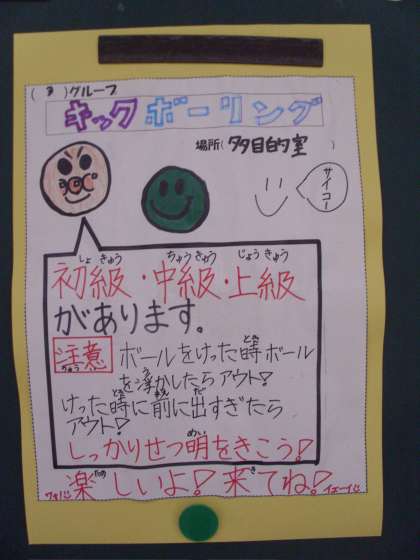 グループ
キックボーリング
場所(多目的室)
サイコー
初級・中級・上級
があります。
注意 ボールをけった時ボール
を浮かしたらアウト!
けった時に前に出すぎたら
アウト!
しっかりせつ明をきこう!
楽しいよ!来てね!
イェーイ